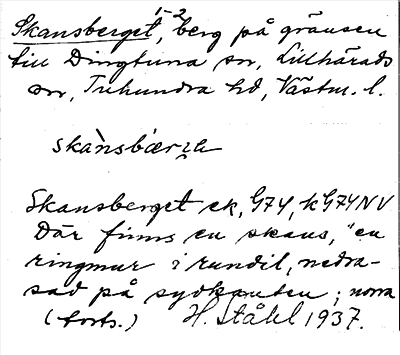 Skansberget 1-2, berg på gränsen
till Dingtuna sn, Lillhärads
sn, Tuhundra hd, Västm. l.
skànsbærja
Skansberget ek, G74, k G74NV
Där finns en skans, "en
ringmur i rundil, nedra-
sad på sydkanten; norra
(forts.) H. Ståhl 1937.